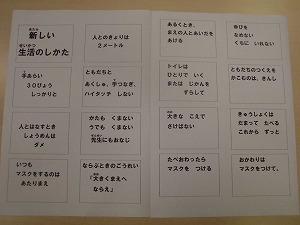 新しい
生活のしかた
人とのきょりは
2メートル
手あらい
30びょう
しっかりと
ともだちと
あくしゅ、手つなぎ、
ハイタッチ しない
人とはなすとき
しょうめんは
ダメ
かたも くまない
うでも くまない
先生にもおなじ
いつも
マスクをするのは
あたりまえ
ならぶときのごうれい
「大きくまえへ
ならえ」
あるくとき、
まえの人とあいだを
あける
ゆびを
なめない
くちに いれない
トイレは
ひとりで いく
または じかんを
ずらして
ともだちのつくえを
かこむのは、きんし
大きな こえで
さけばない
きゅうしょくは
だまって たべる
これから ずっと
たべおわったら
マスクを つける
おかわりは
マスクをつけて、